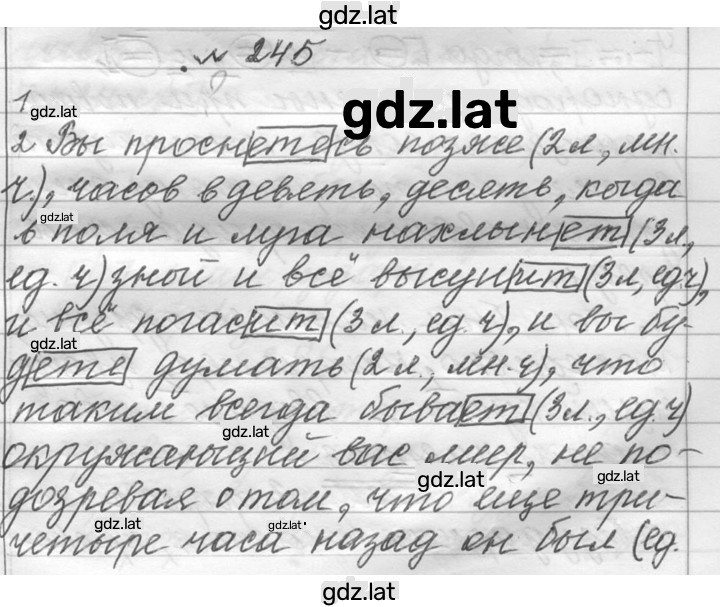 gdz.lat
№ 245
1
gdz.lat
gdz.lat
2 Вы проснетесь позже (2 л., мн.
ч.), часов в девять, десять, когда
gdz.lat
в поля и луга нахлынет (3 л,
ед. ч) зной и всё высушит (3 л, ед. ч),
и всё погасит (3 л., ед. ч), и вы бу-
gdz.lat
дете думать (2 л., мн. ч), что
таким всегда бывает (3 л., ед. ч)
gdz.lat
окружающий вас мир, не по-
gdz.lat
gdz.lat
дозревая о том, что еще три-
gdz.lat
gdz.lat
четыре часа назад он был (ед.
gdz.lat